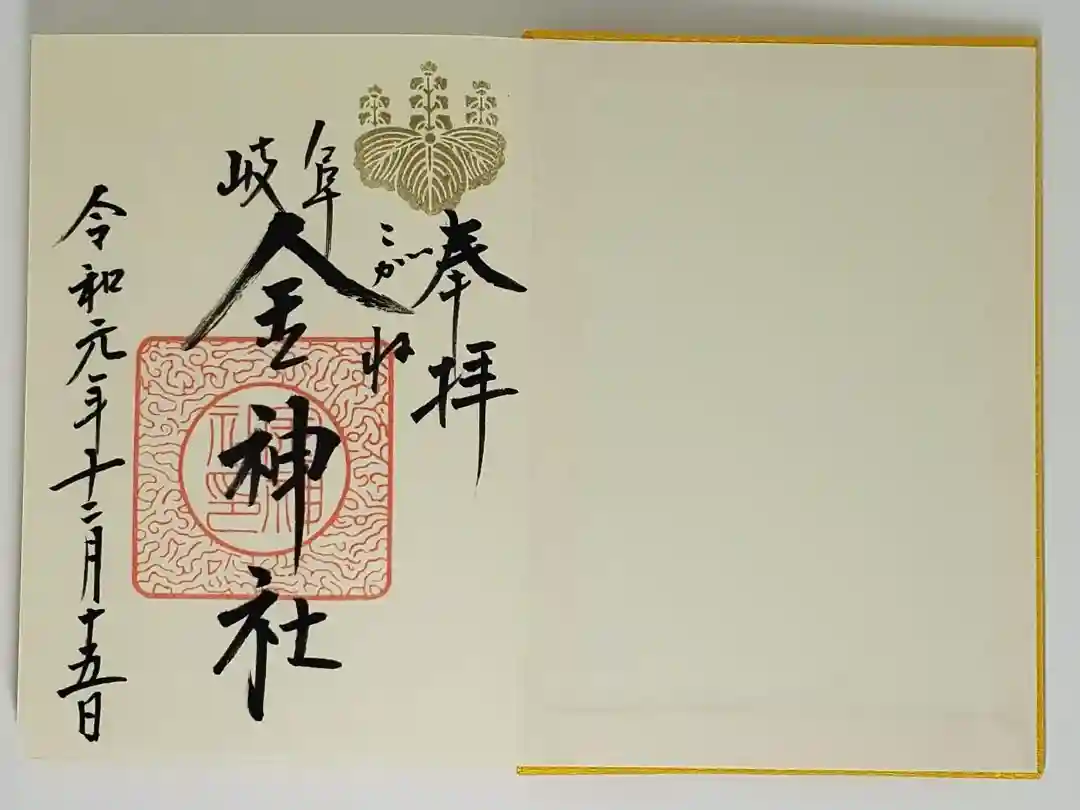 奉拝
岐阜
こがね
金神社
令和元年十二月十五日